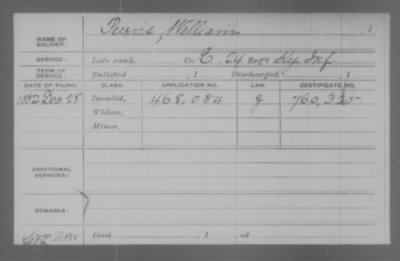 NAME OF SOLDIER: Purvis, William
SERVICE: Late rank, Co. C, 24 Reg't Ky Inf
TERM OF SERVICE: Enlisted , 1 Discharged , 1
DATE OF FILING. CLASS. APPLICATION NO. LAW. CERTIFICATE NO.
1882 Dec 28 Invalid, 468,084 G 760,325
Widow,
Minor,
ADDITIONAL SERVICES:
REMARKS:
Died , 1 , at